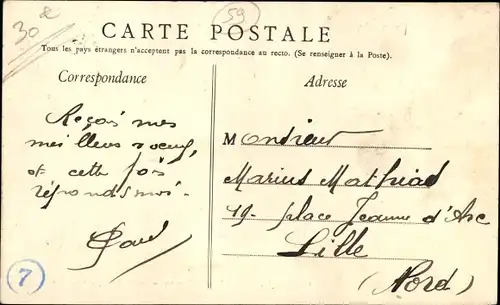 30
59
CARTE POSTALE
Tous les pays étrangers n'acceptent pas la correspondance au recto. (Se renseigner à la Poste).
Correspondance
Adresse
Reçois mes
meilleurs voeux,
et cette fois
réponds moi.
Paul
Monsieur
Marius Mathias
19- place Jeanne d'Arc
Lille
(Nord)
7